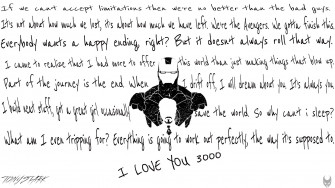 If we can't accept limitations then we're no better than the bad guys.
It's not about how much we lost, it's about how much we have left. We're the Avengers. We gotta finish this.
Everybody wants a happy ending, right? But it doesn't always roll that way.
I came to realise that I had more to offer this world than just making things that blow up.
Part of the journey is the end. When I drift off, I will dream about you. It's always you.
I build neat stuff, got a great girl, occasionally save the world. So why can't i sleep?
What am I even tripping for? Everything is going to work out perfectly, the way it's supposed to.
I LOVE YOU 3000
TONY STARK